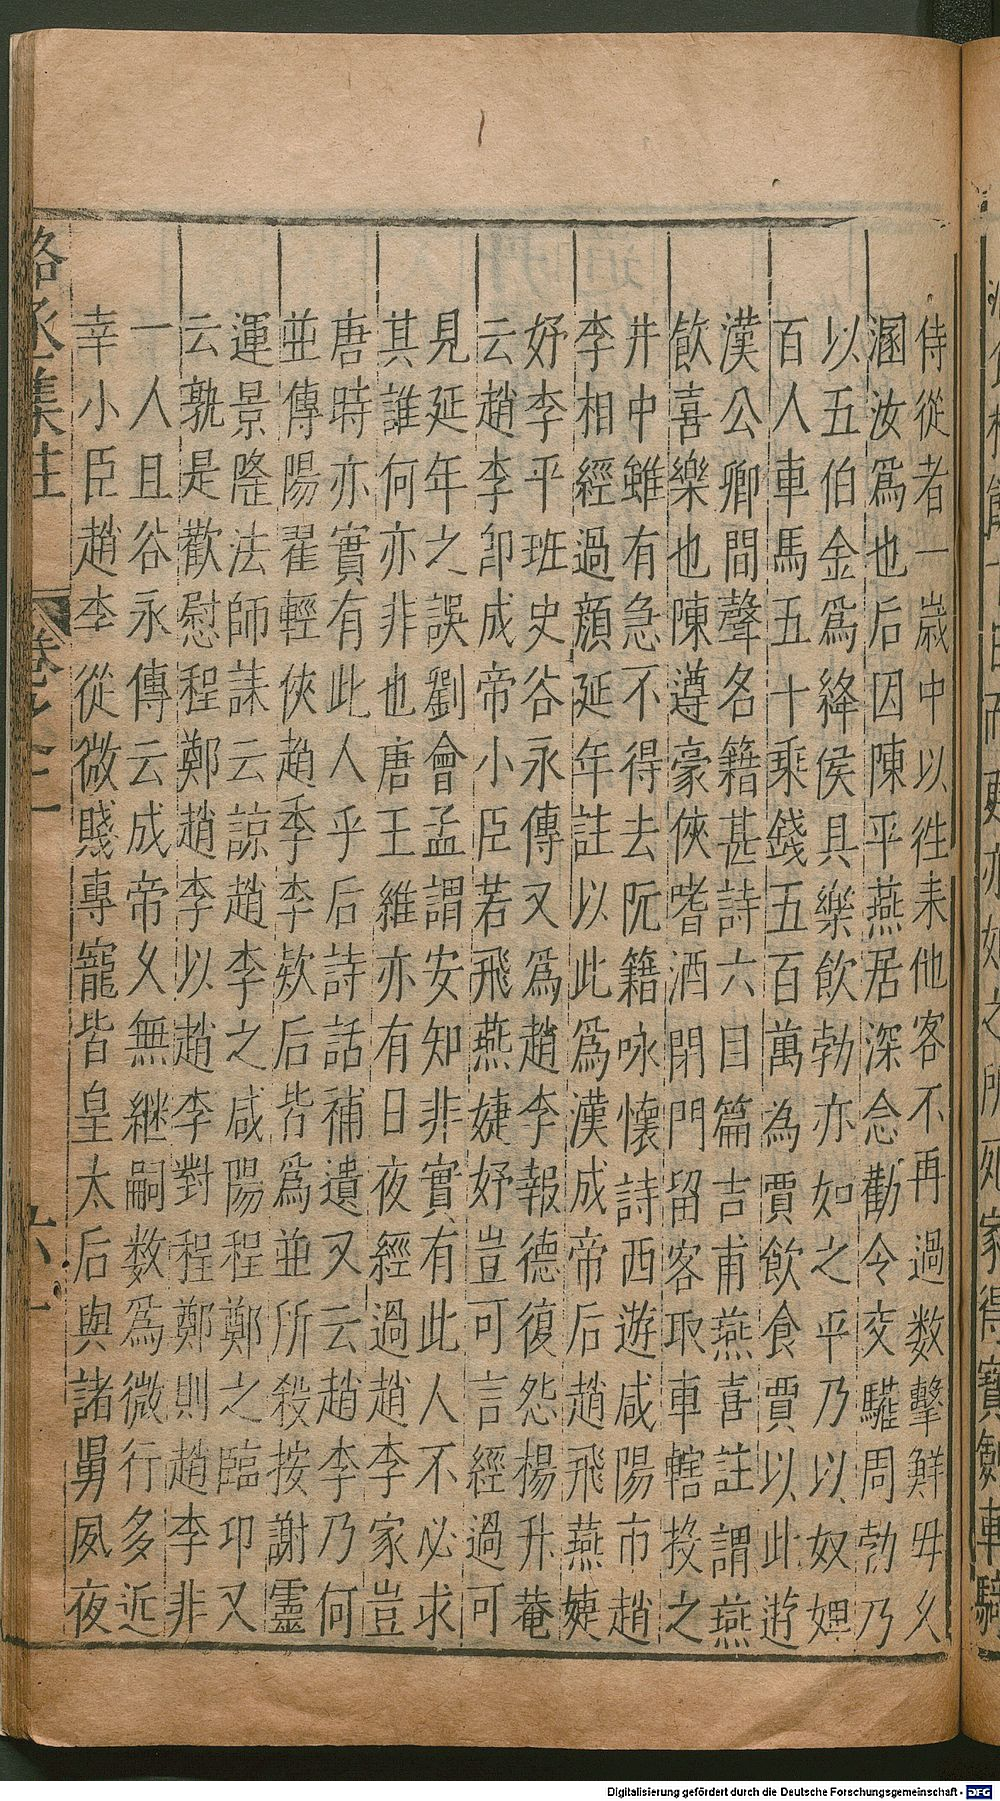 侍從者一歲中以徃来他客不再過数擊鮮毋乆
溷汝爲也后因陳平燕居深念勸令交驩周勃乃
以五伯金爲絳侯具樂飲勃亦如之平乃以奴婢
百人車馬五十乘錢五百萬為賈飲食賈以此遊
漢公卿間聲名籍甚詩六目篇吉甫燕喜註謂燕
飲喜樂也陳遵豪俠嗜酒閉門留客取車轄投之
井中雖有急不得去阮籍咏懷詩西遊咸陽市趙
李相經過顔延年註以此爲漢成帝后趙飛燕婕
妤李平班史谷永傳又爲趙李報德復怨楊升菴
云趙李卽成帝小臣若飛燕婕妤豈可言經過可
見延年之誤劉會孟謂安知非實有此人不必求
其誰何亦非也唐王維亦有日夜經過趙李家豈
唐時亦實有此人乎后詩話補遺又云趙李乃何
並傳陽翟輕俠趙季李欵后皆爲並所殺按謝靈
運景隆法師誄云諒趙李之咸陽程鄭之臨卭又
云孰是歡慰程鄭趙李以趙李對程鄭則趙李非
一人且谷永傳云成帝乆無継嗣数爲微行多近
幸小臣趙李從微賤專寵皆皇太后與諸舅夙夜
駱丞集註 卷之二 六
Digitalisierung gefördert durch die Deutsche Forschungsgemeinschaft - DFG